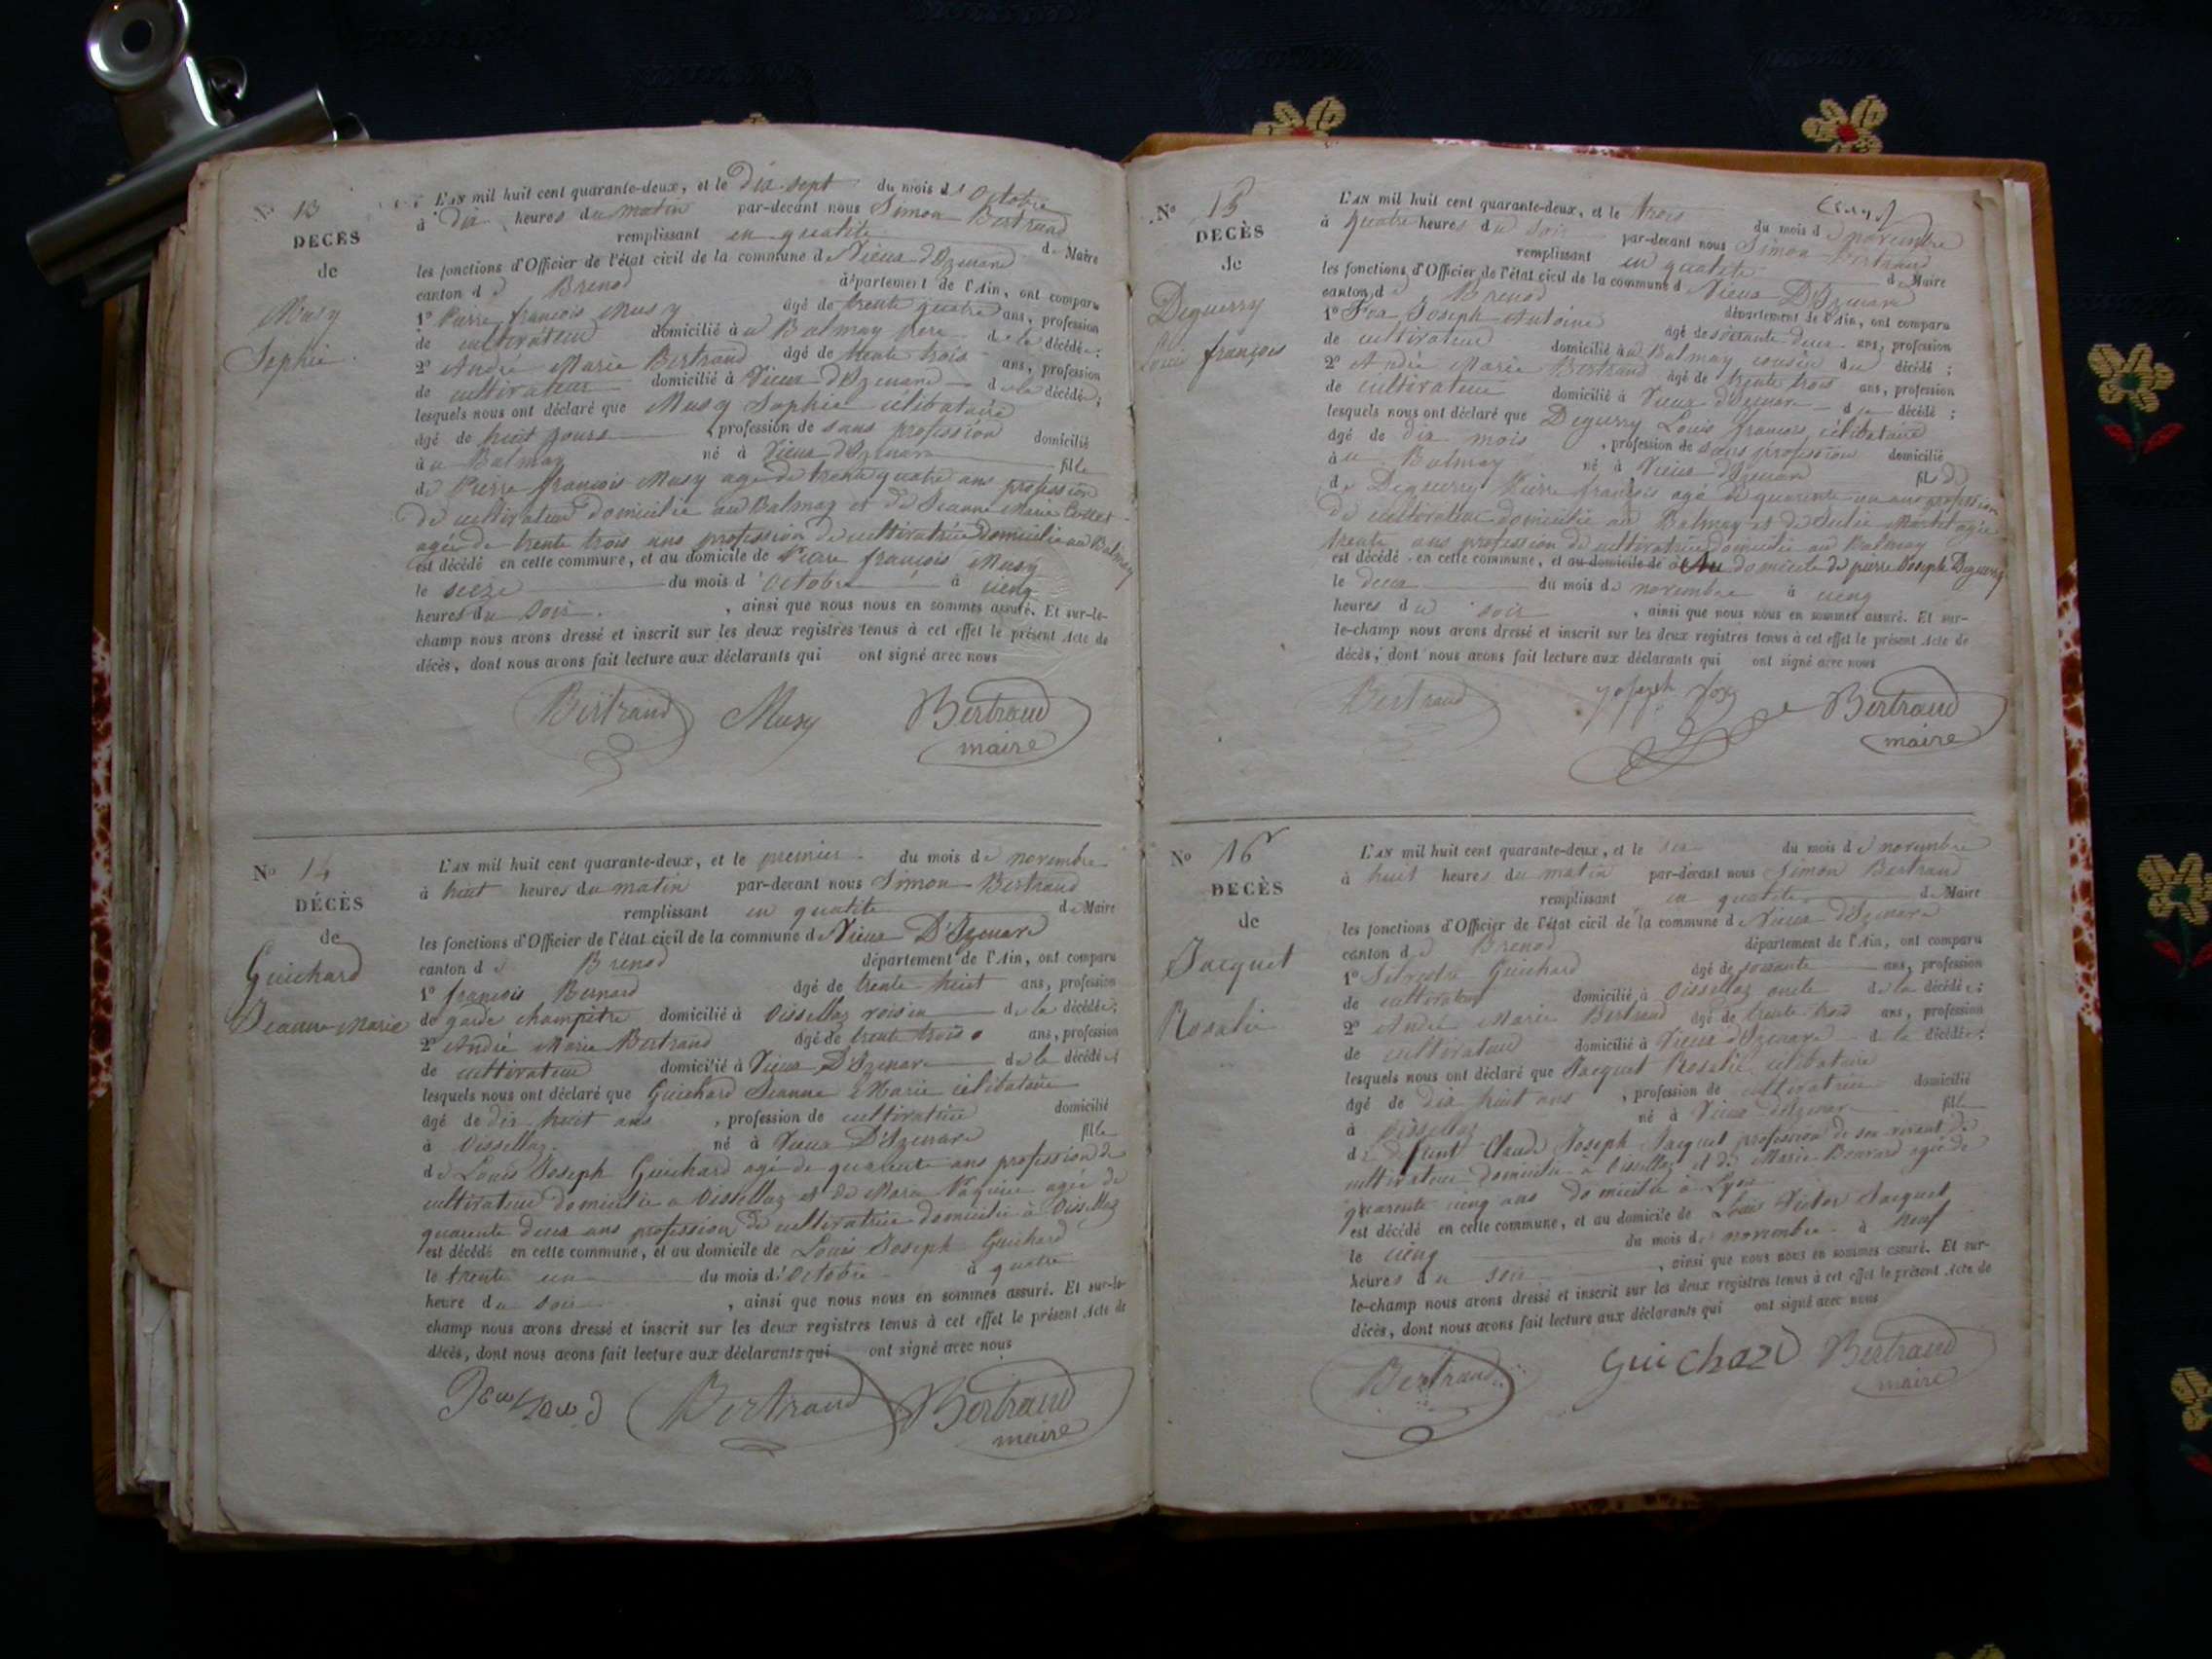 No 13
DECÈS
de
Musy
Sophie
L'AN mil huit cent quarante-deux, et le dix-sept du mois d'Octobre
à dix heures du matin par-devant nous Simon Bertrand
remplissant en qualité de Maire
les fonctions d'Officier de l'état civil de la commune de Vieux d'Izenave
canton de Brenod département de l'Ain, ont comparu
1o Pierre françois Musy âgé de trente quatre ans, profession
de cultivateur domicilié à u Balmay pere de la décédée;
2o André Marie Bertrand âgé de trente trois ans, profession
de cultivateur domicilié à Vieux d'Izenave de la décédée;
lesquels nous ont déclaré que Musy Sophie célibataire
âgé de huit jours, profession de sans profession domicilié
à u Balmay né à Vieux d'Izenave fille
de Pierre françois Musy agé de trente quatre ans profession
de cultivateur domicilié au Balmay et de Jeanne Marie Collet
agée de trente trois ans profession de cultivatrice domicilié au Balmay
est décédé en cette commune, et au domicile de Pierre françois Musy
le seize du mois d'octobre à cinq
heures du soir, ainsi que nous nous en sommes assuré. Et sur-le-
champ nous avons dressé et inscrit sur les deux registres tenus à cet effet le présent Acte de
décès, dont nous avons fait lecture aux déclarants qui ont signé avec nous
Bertrand Musy Bertrand
maire
No 14
DÉCÈS
de
Guichard
Jeanne-Marie
L'AN mil huit cent quarante-deux, et le premier du mois de novembre
à huit heures du matin par-devant nous Simon Bertrand
remplissant en qualité de Maire
les fonctions d'Officier de l'état civil de la commune de Vieux D'Izenave
canton de Brenod département de l'Ain, ont comparu
1o françois Bernard âgé de trente huit ans, profession
de garde champêtre domicilié à Oissellaz voisin de la décédée;
2o André Marie Bertrand âgé de trente trois ans, profession
de cultivateur domicilié à Vieux D'Izenave de la décédée;
lesquels nous ont déclaré que Guichard Jeanne Marie célibataire
âgé de dix huit ans, profession de cultivatrice domicilié
à Oissellaz né à Vieux D'Izenave fille
de Louis Joseph Guichard agé de quarante ans profession de
cultivateur domicilié a Oissellaz et de Marie agée de
quarante deux ans profession de cultivatrice domicilié à Oissellaz
est décédé en cette commune, et au domicile de Louis Joseph Guichard
le trente un du mois d'Octobre à quatre
heure du soir, ainsi que nous nous en sommes assuré. Et sur-le-
champ nous avons dressé et inscrit sur les deux registres tenus à cet effet le présent Acte de
décès, dont nous avons fait lecture aux déclarants qui ont signé avec nous
Bertrand Bertrand
maire
No 15
DECÈS
de
Deguerry
Louis françois
L'AN mil huit cent quarante-deux, et le trois du mois de novembre
à quatre heures du soir par-devant nous Simon Bertrand
remplissant en qualité de Maire
les fonctions d'Officier de l'état civil de la commune de Vieux D'Izenave
canton de Brenod département de l'Ain, ont comparu
1o Joseph Antoine âgé de soixante deux ans, profession
de cultivateur domicilié à u Balmay cousin du décédé;
2o André Marie Bertrand âgé de trente trois ans, profession
de cultivateur domicilié à Vieux d'Izenave décédé;
lesquels nous ont déclaré que Deguerry Louis françois célibataire
âgé de dix mois, profession de sans profession domicilié
à u Balmay né à Vieux d'Izenave fils
de Deguerry Pierre françois agé de quarente un ans profession
de cultivateur domicilié au Balmay et de Julie agée
trente ans profession de cultivatrice domicilié au Balmay
est décédé en cette commune, et au domicile de Au domicile de pierre Joseph Deguerry
le deux du mois de novembre à cinq
heures du soir, ainsi que nous nous en sommes assuré. Et sur-
le-champ nous avons dressé et inscrit sur les deux registres tenus à cet effet le présent Acte de
décès, dont nous avons fait lecture aux déclarants qui ont signé avec nous
Bertrand Bertrand
maire
No 16
DECÈS
de
Jacquet
Rosalie
L'AN mil huit cent quarante-deux, et le six du mois de novembre
à huit heures du matin par-devant nous Simon Bertrand
remplissant en qualité de Maire
les fonctions d'Officier de l'état civil de la commune de Vieux d'Izenave
canton de Brenod département de l'Ain, ont comparu
1o Silvestre Guichard âgé de soixante ans, profession
de cultivateur domicilié à Oissellaz oncle de la décédée;
2o André Marie Bertrand âgé de trente trois ans, profession
de cultivateur domicilié à Vieux d'Izenave de la décédée;
lesquels nous ont déclaré que Jacquet Rosalie célibataire
âgé de dix huit ans, profession de cultivatrice domicilié
à Oissellaz né à Vieux d'Izenave fille
de défunt Claude Joseph Jacquet profession de son vivant de
cultivateur domicilié à Oissellaz et de Marie agée de
quarente cinq ans domicilié à Lyon
est décédé en cette commune, et au domicile de Louis Victor Jacquet
le cinq du mois de novembre à neuf
heures du soir, ainsi que nous nous en sommes assuré. Et sur-
le-champ nous avons dressé et inscrit sur les deux registres tenus à cet effet le présent Acte de
décès, dont nous avons fait lecture aux déclarants qui ont signé avec nous
Bertrand Guichard Bertrand
maire